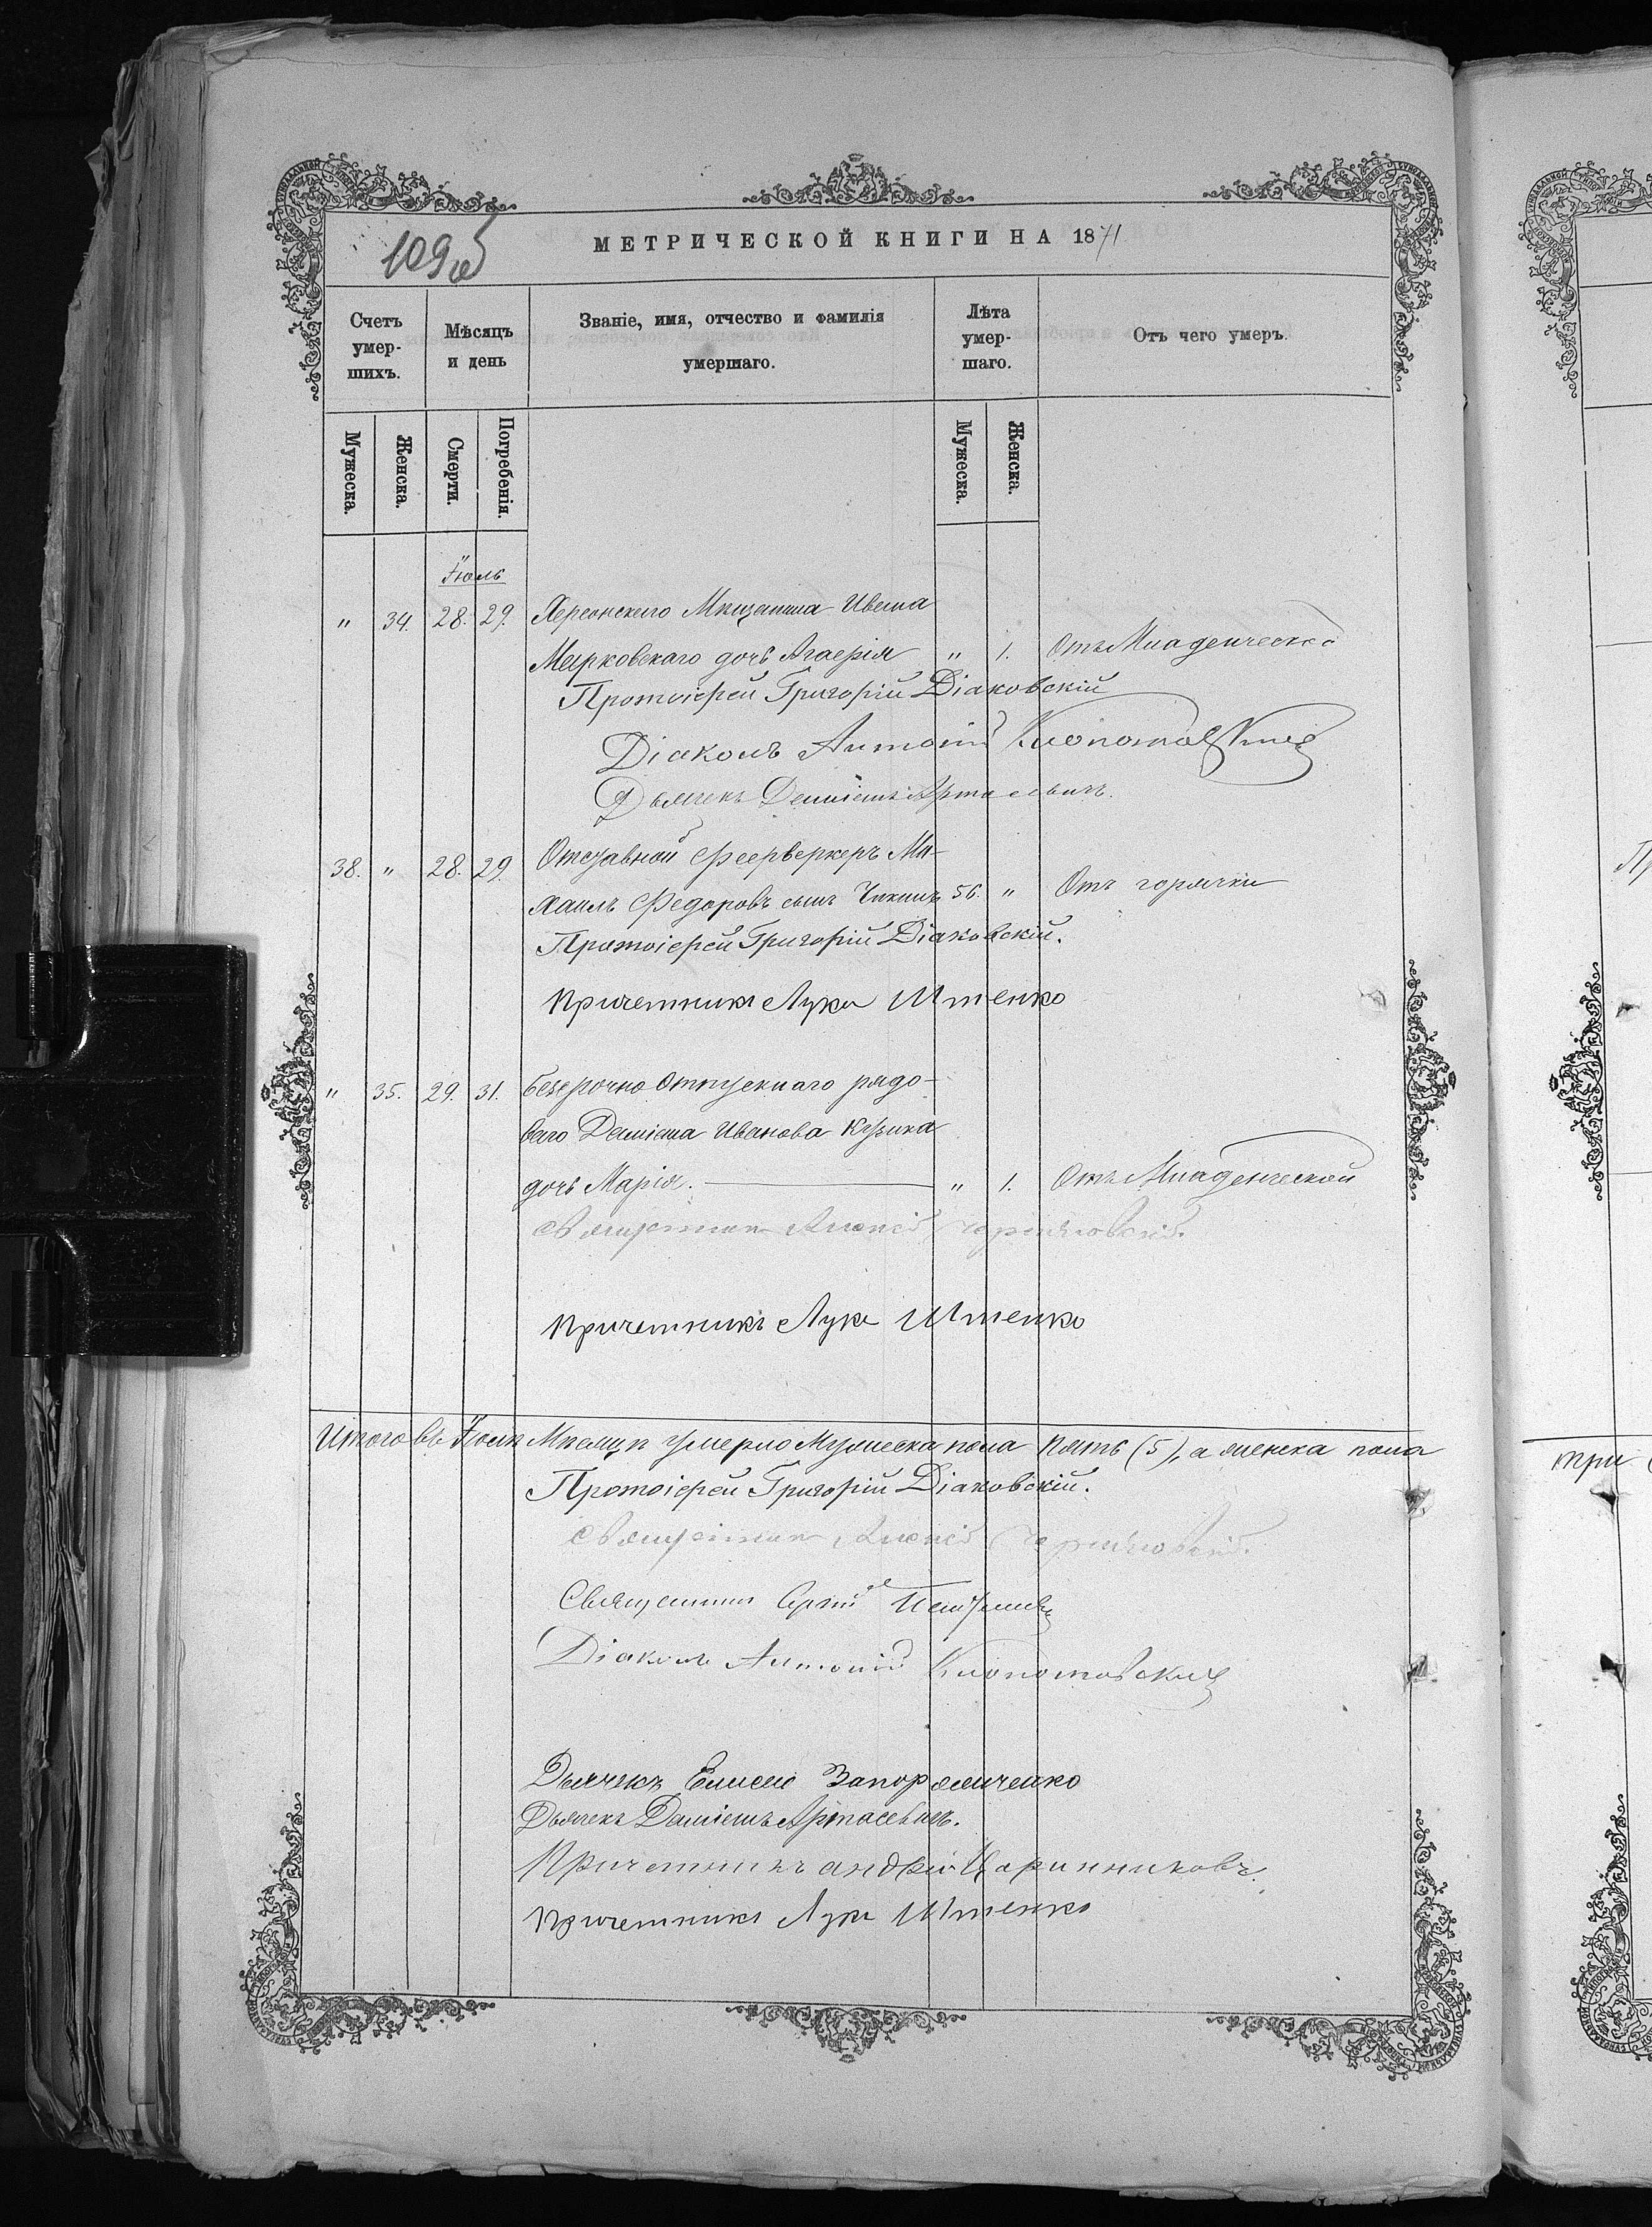 109об
МЕТРИЧЕСКОЙ КНИГИ НА 1871
Счетъ умер-шихъ.
Мѣсяцъ и день
Званіе, имя, отчество и фамилія умершаго.
Лѣта умер-шаго.
Отъ чего умеръ.
Мужеска. Женска. Смерти. Погребенія. Мужеска. Женска.
Іюль
" 34. 28. 29. Херсонскаго Мѣщанина Ивана
Марковскаго дочь Агафія " 1. Отъ Младенческой
Протоіерей Григорій Діаковскій
Діаконъ Антоній Клопотовскій
Дьячекъ Даміанъ Артасевичъ.
38. " 28. 29. Отставной Феерверкеръ Ми-
хаилъ Федоровъ сынъ 56. " Отъ горячки
Протоіерей Григорій Діаковскій.
Причетникъ Лука Ищенко
" 35. 29. 31. безсрочно отпускнаго рядо-
ваго Даміана Иванова
дочь Марія. " 1. Отъ Младенческой
Священник Алексій
Причетникъ Лука Ищенко
Итого въ Іюлѣ Мѣсяцѣ умерло Мужеска пола пять (5), а женска пола
три
Протоіерей Григорій Діаковскій.
Священник Алексій
Священникъ Сергій
Діаконъ Антоній Клопотовскій
Дьячекъ Елисей Запорожченко
Дьячекъ Даміанъ Артасевичъ.
Причетникъ андрей Царинниковъ.
Причетникъ Лука Ищенко